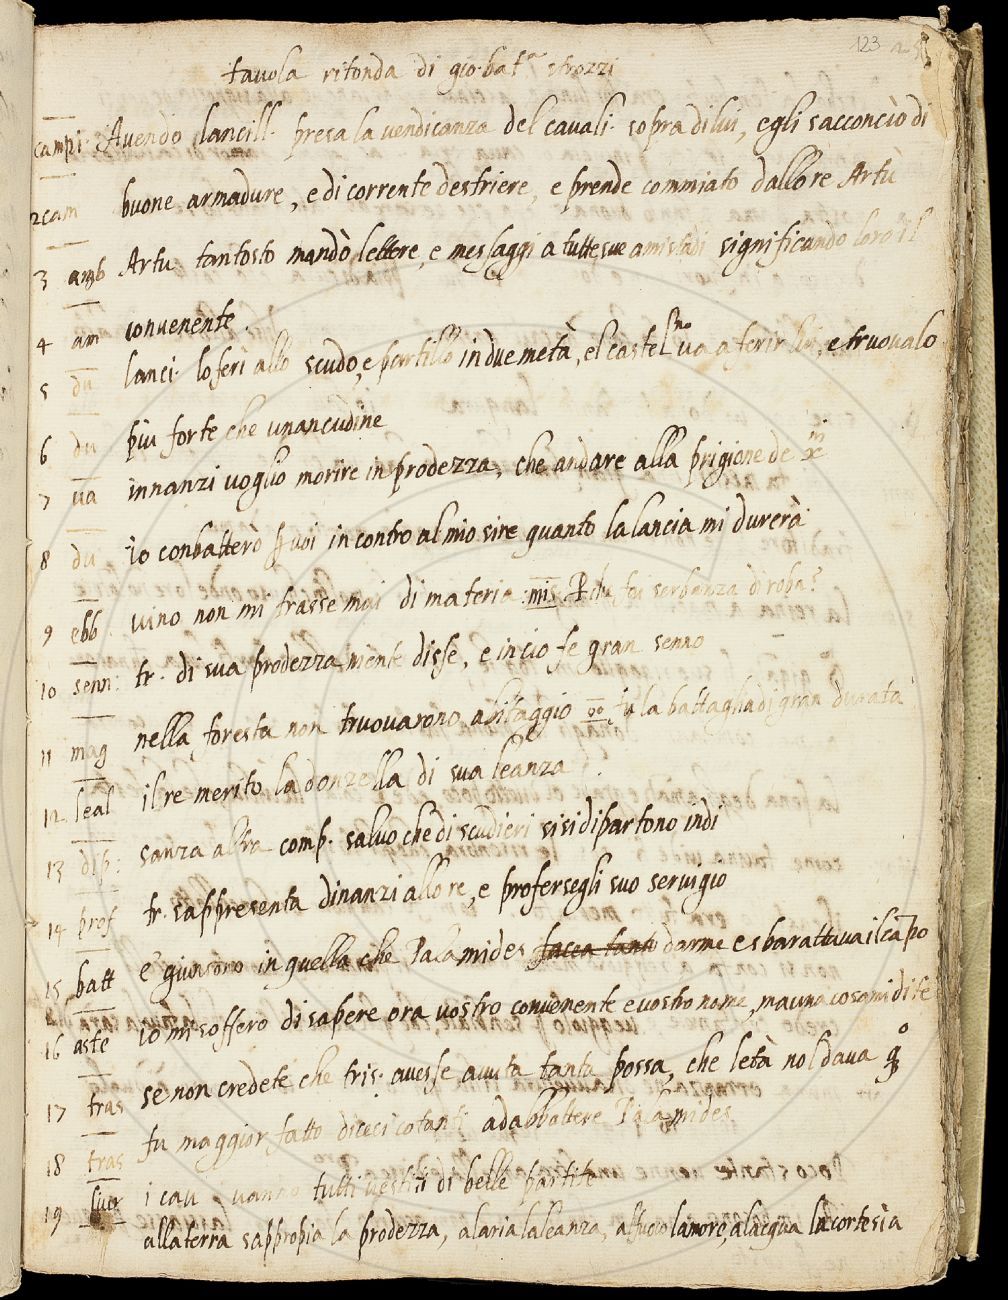 123
tavola ritonda di gio. bat.ta strozzi
campi Avendo lancill. presa la vendicanza del cavali. sopra di lui, egli sacconciò di
2 cam buone armadure, e di corrente destriere, e prende commiato dallo re Artu
3 amb Artu tantosto mandò lettere, e messaggi a tutte sue amistadi significando loro il
4 am convenente.
5 du lanci. lo ferì allo scudo, e partillo in due metà, el castel.no va a ferir lui, e truovalo
6 du più forte che unancudine
7 va innanzi voglio morire in prodezza, che andare alla prigione de
8 du io conbatterò voi incontro al mio sire quanto la lancia mi durerà
9 ebb vino non mi trasse mai di materia :mis. fu serbanza di roba?
10 senn: tr. di sua prodezza niente disse, e in cio fe gran senno
11 mag nella foresta non truovarono abitaggio fu la battaglia di gran durata
12 leal il re merito la donzella di sua leanza
13 dip: sanza altra comp. salvo che di scudieri sisi dipartono indi
14 prof tr. sappresenta dinanzi allo re, e profersegli suo servigio
15 batt e giunsono in quella che Palamides facea tanto darme e sbarattava il campo
16 aste io mi soffero di sapere ora vostro convenente e vostro nome, ma una cosa mi dite
17 tras se non credete che tris. avesse avuta tanta possa, che letà nol dava
18 tras fu maggior fatto dieci cotanti ad abbattere Palamides
19 i cav. vanno tutti vestiti di belle partite
alla terra sappropia la prodezza, alaria la leanza, al fuoco lamore, alacqua la cortesia